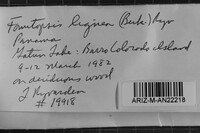 Fomitopsis lignea (Berk.) Ryv
Panama
Gatun Lake - Barro Colorado island
9-12 March 1982
on deciduous wood
L Ryvarden
# 19918
ARIZ-M-AN22218